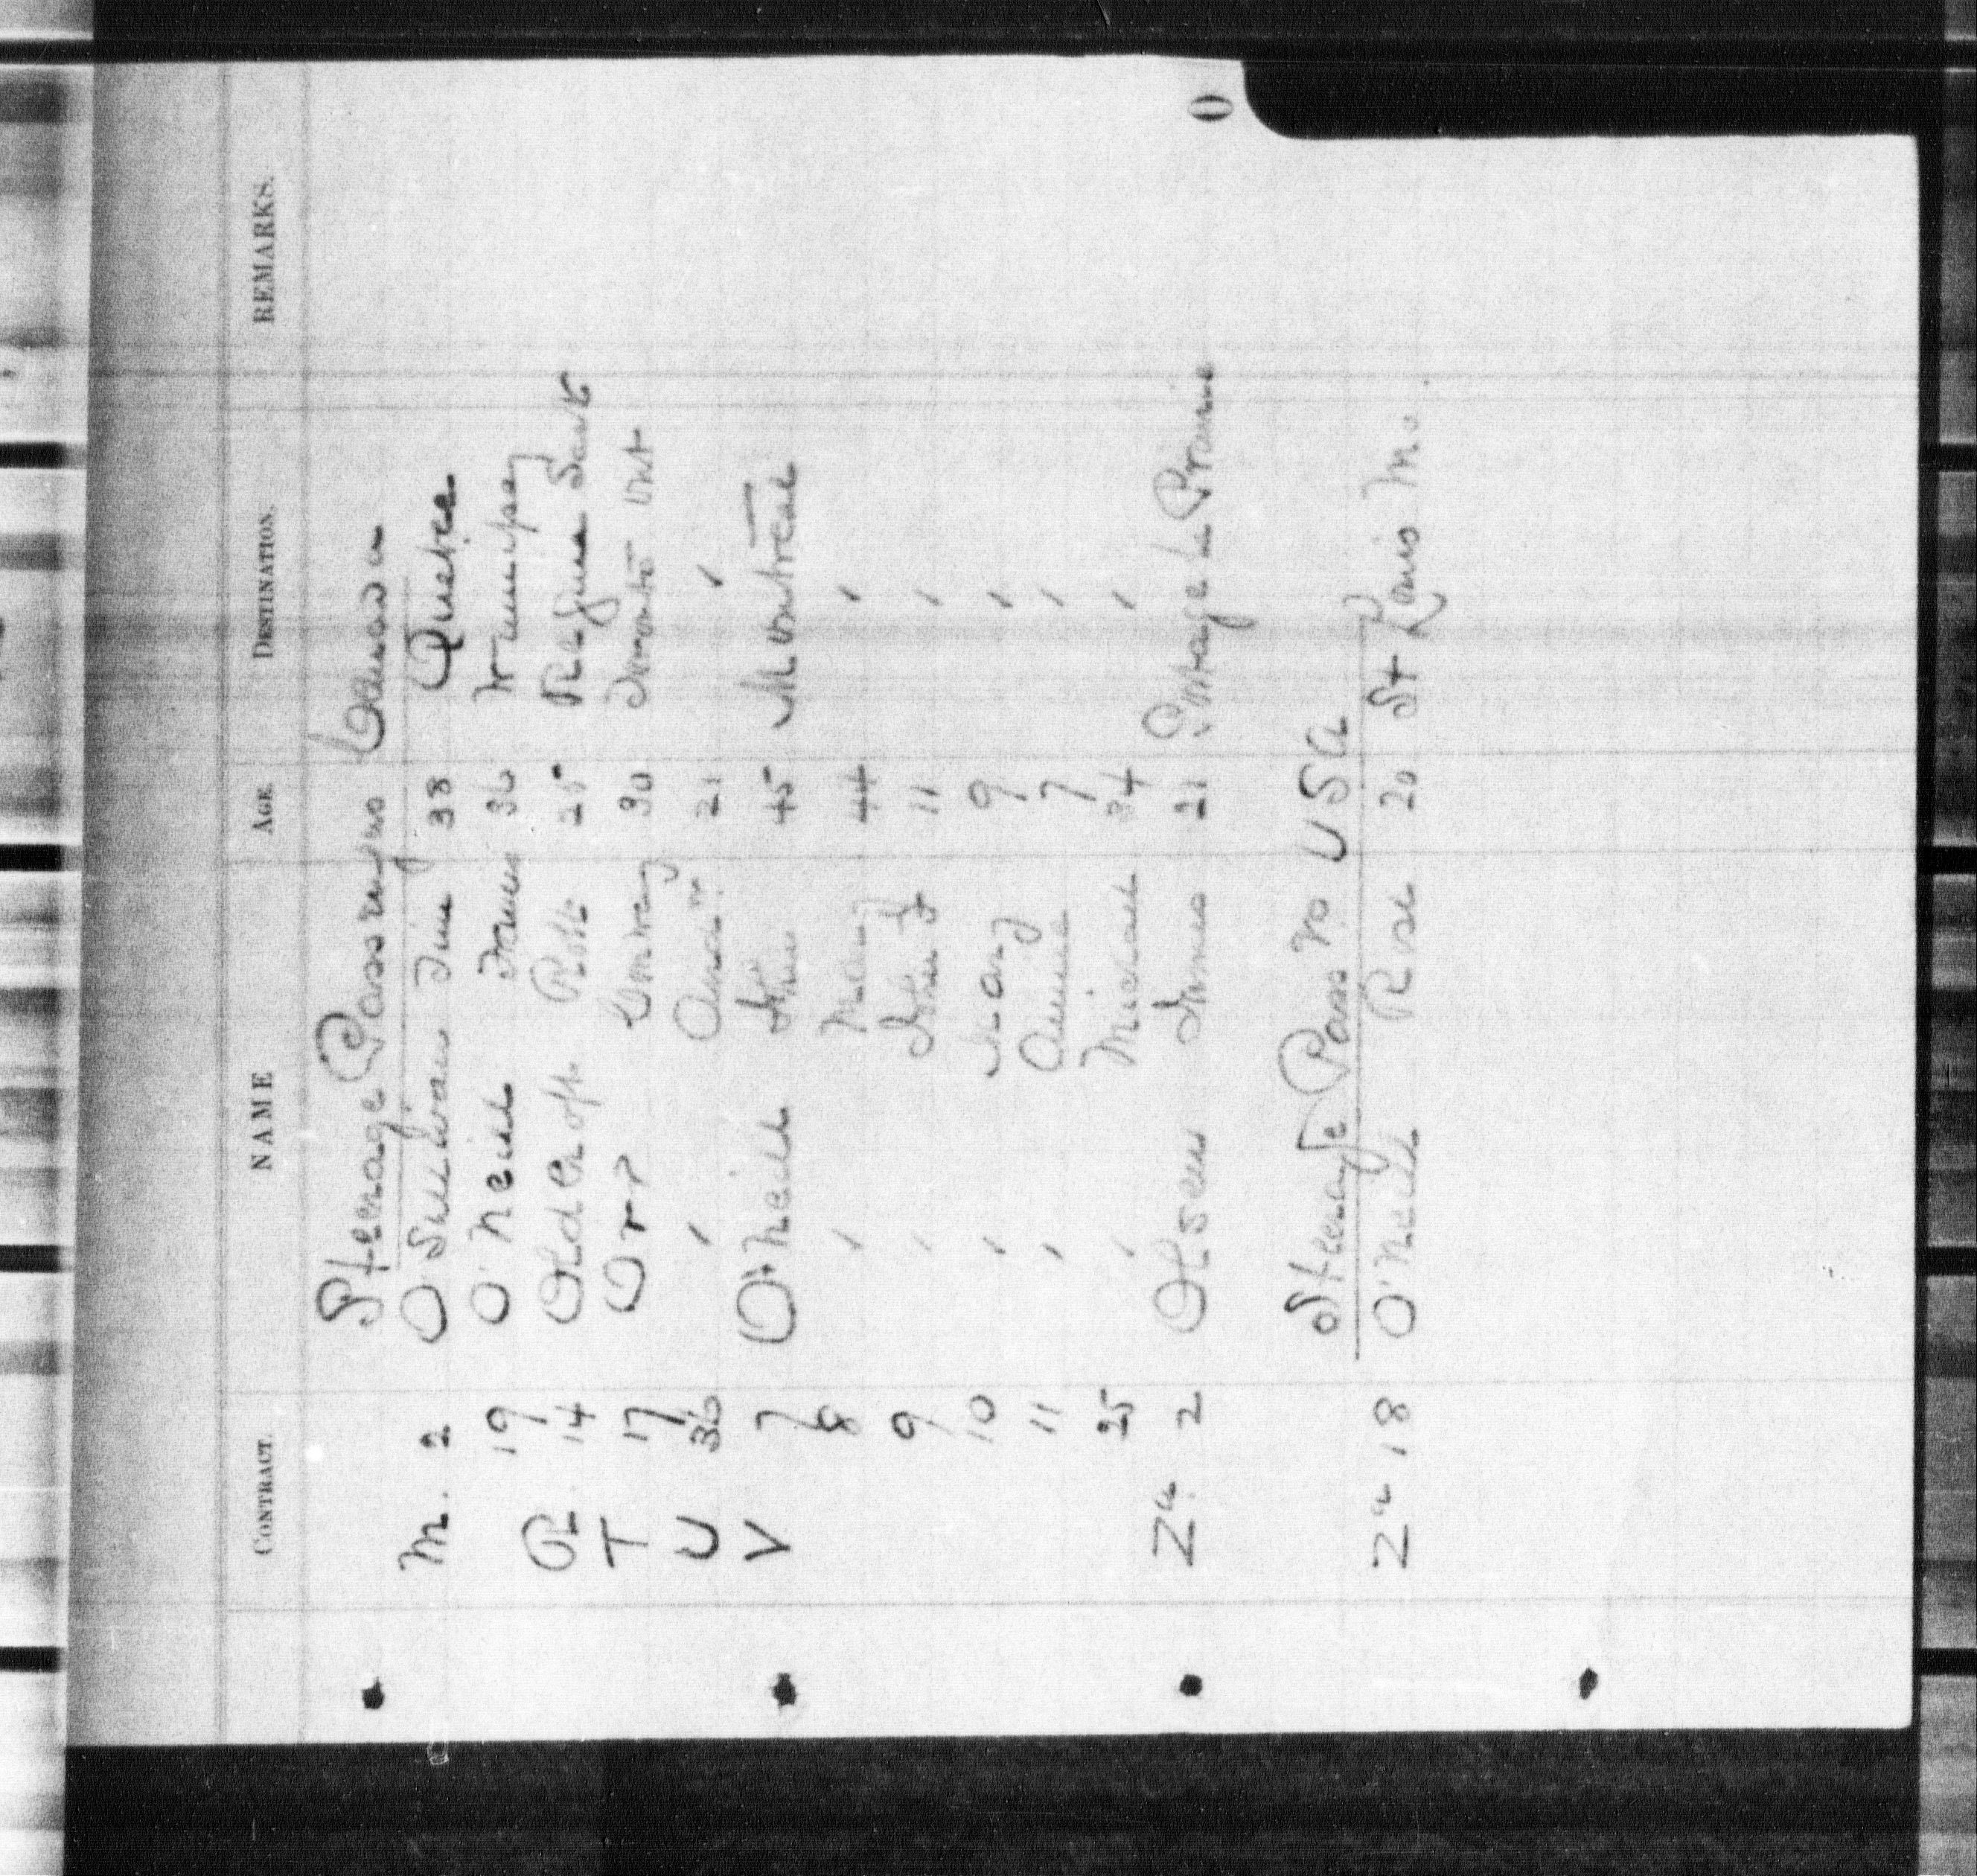 O
CONTRACT. NAME AGE DESTINATION. REMARKS.
Steerage Passengers Canada
M. 2 O Sullivan Jim 38 Quebec
19 O'Neil 36 Winnipeg
P 14 Robt 25 Regina Sask
T 17 Orr 30 Toronto Ont
U 36 " 21 "
V 7 O'Neill John 45 Montreal
8 " Mary 44 "
9 " John J 11 "
10 " Mary 9 "
11 " Annie 7 "
25 " Michael 34 "
Za 2 Olsen 21 Portage La Prairie
Steerage Pass rs USA
Za 18 O'Neill Rose 20 St Louis Mo.